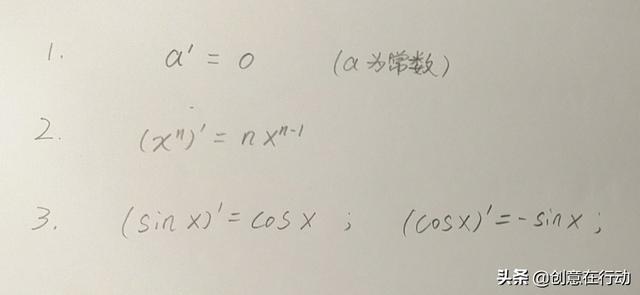 1. a' = 0 (a为常数)
2. (xⁿ)' = n xⁿ⁻¹
3. (sin x)' = cos x ; (cosx)' = - sinx ;
头条 @创意在行动